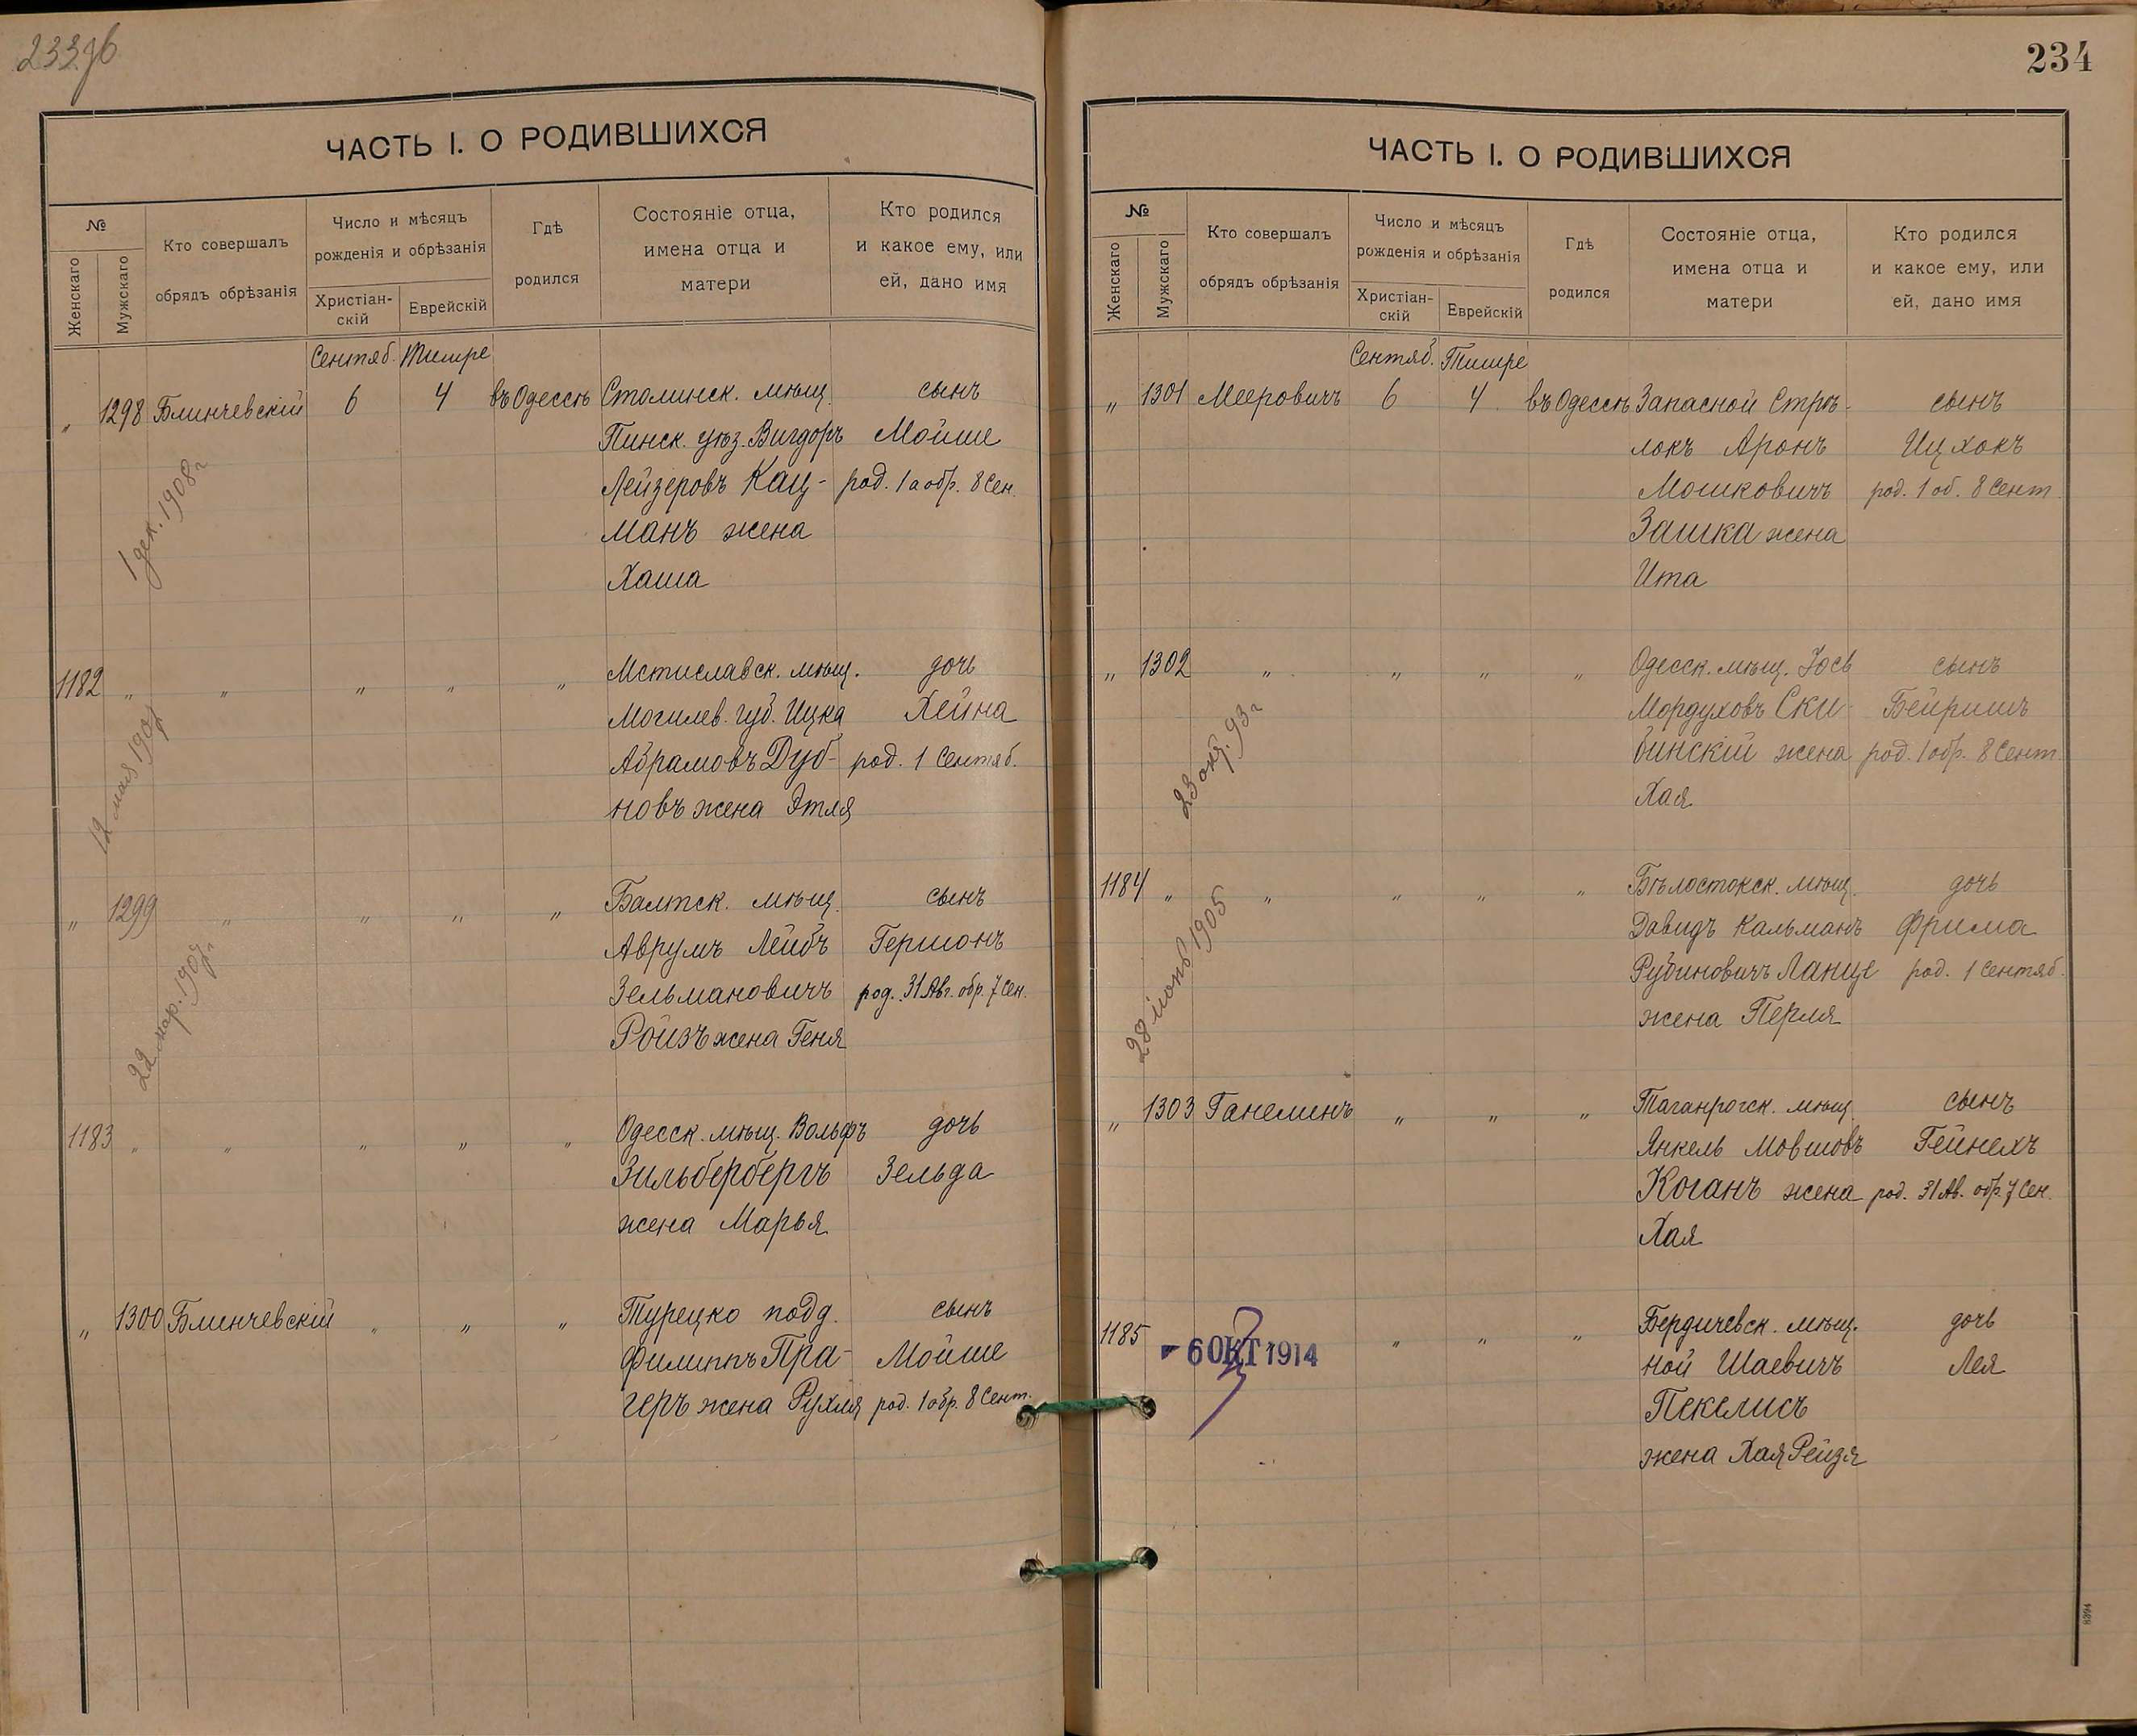 233об
ЧАСТЬ I. О РОДИВШИХСЯ
№
Женскаго
Мужскаго
Кто совершалъ
обрядъ обрѣзанія
Число и мѣсяцъ
рожденія и обрѣзанія
Христіан-
скій
Еврейскій
Гдѣ
родился
Состояніе отца,
имена отца и
матери
Кто родился
и какое ему, или
ей, дано имя
Сентяб. Тишре
„ 1298 Блинчевскій 6 4 въ Одессѣ Столинск. мѣщ. сынъ
Пинск. уѣз. Вигдоръ Мойше
Лейзеровъ Кац- род. 1 а обр. 8 Сен.
манъ жена
Хаша
1 дек. 1908 г
1182 „ „ „ „ „ Мстиславск. мѣщ. дочь
Могилев. губ. Ицка Хейна
Абрамовъ Дуб- род. 1 Сентяб.
новъ жена Этля
12 мая 1907
„ 1299 „ „ „ „ Балтск. мѣщ. сынъ
Аврумъ Лейбъ Гершонъ
Зельмановичъ род. 31 Авг. обр. 7 Сен.
Ройзъ жена Геня
22 мар. 1907 г
1183 „ „ „ „ „ Одесск. мѣщ. Вольфъ дочь
Зильбербергъ Зельда
жена Марья
„ 1300 Блинчевскій „ „ „ Турецко подд. сынъ
Филиппъ Пра- Мойше
геръ жена Рухля род. 1 обр. 8 Сент.
234
ЧАСТЬ I. О РОДИВШИХСЯ
№
Женскаго
Мужскаго
Кто совершалъ
обрядъ обрѣзанія
Число и мѣсяцъ
рожденія и обрѣзанія
Христіан-
скій
Еврейскій
Гдѣ
родился
Состояніе отца,
имена отца и
матери
Кто родился
и какое ему, или
ей, дано имя
Сентяб. Тишре
„ 1301 Мееровичъ 6 4 въ Одессѣ Запасной Стрѣ- сынъ
локъ Аронъ Ицхокъ
Мошковичъ род. 1 об. 8 Сент
Зашка жена
Ита
„ 1302 „ „ „ „ Одесск. мѣщ. Іосв сынъ
Мордуховъ Ски- Бейришъ
бинскій жена род. 1 обр. 8 Сент.
Хая
23 окт. 93 г
1184 „ „ „ „ „ Бѣлостокск. мѣщ. дочь
Давидъ Кальманъ Фрима
Рубиновичъ Ланце род. 1 Сентяб.
жена Перля
28 іюнь 1905
„ 1303 Ганелинъ „ „ „ Таганрогск. мѣщ. сынъ
Янкель Мовшовъ Гейнехъ
Коганъ жена род. 31 Ав. обр. 7 Сен.
Хая
1185 „ „ „ Бердичевск. мѣщ. дочь
- 6 ОКТ 1914
Ной Шаевичъ Лея
Пекелисъ
жена Хая Рейзя
8394